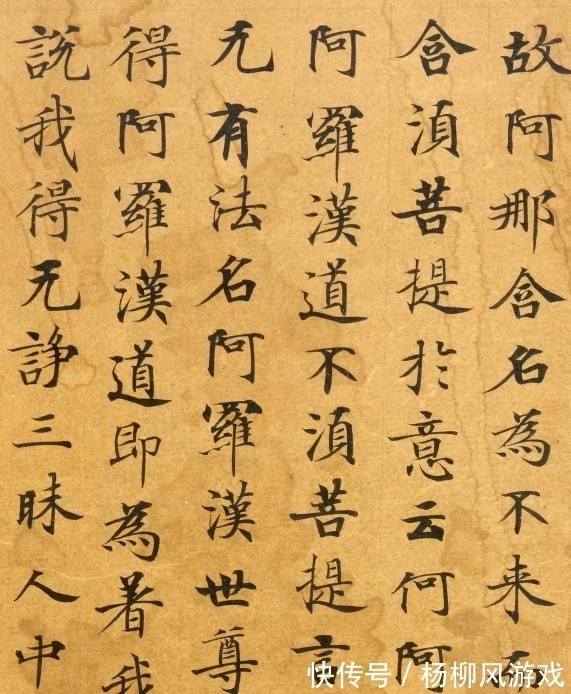 故阿那含名為不来
含湏菩提於意云何阿
阿羅漢道不湏菩提言
无有法名阿羅漢世尊
得阿羅漢道即為著我
說我得无諍三昧人中
快传号 / 杨柳风游戏